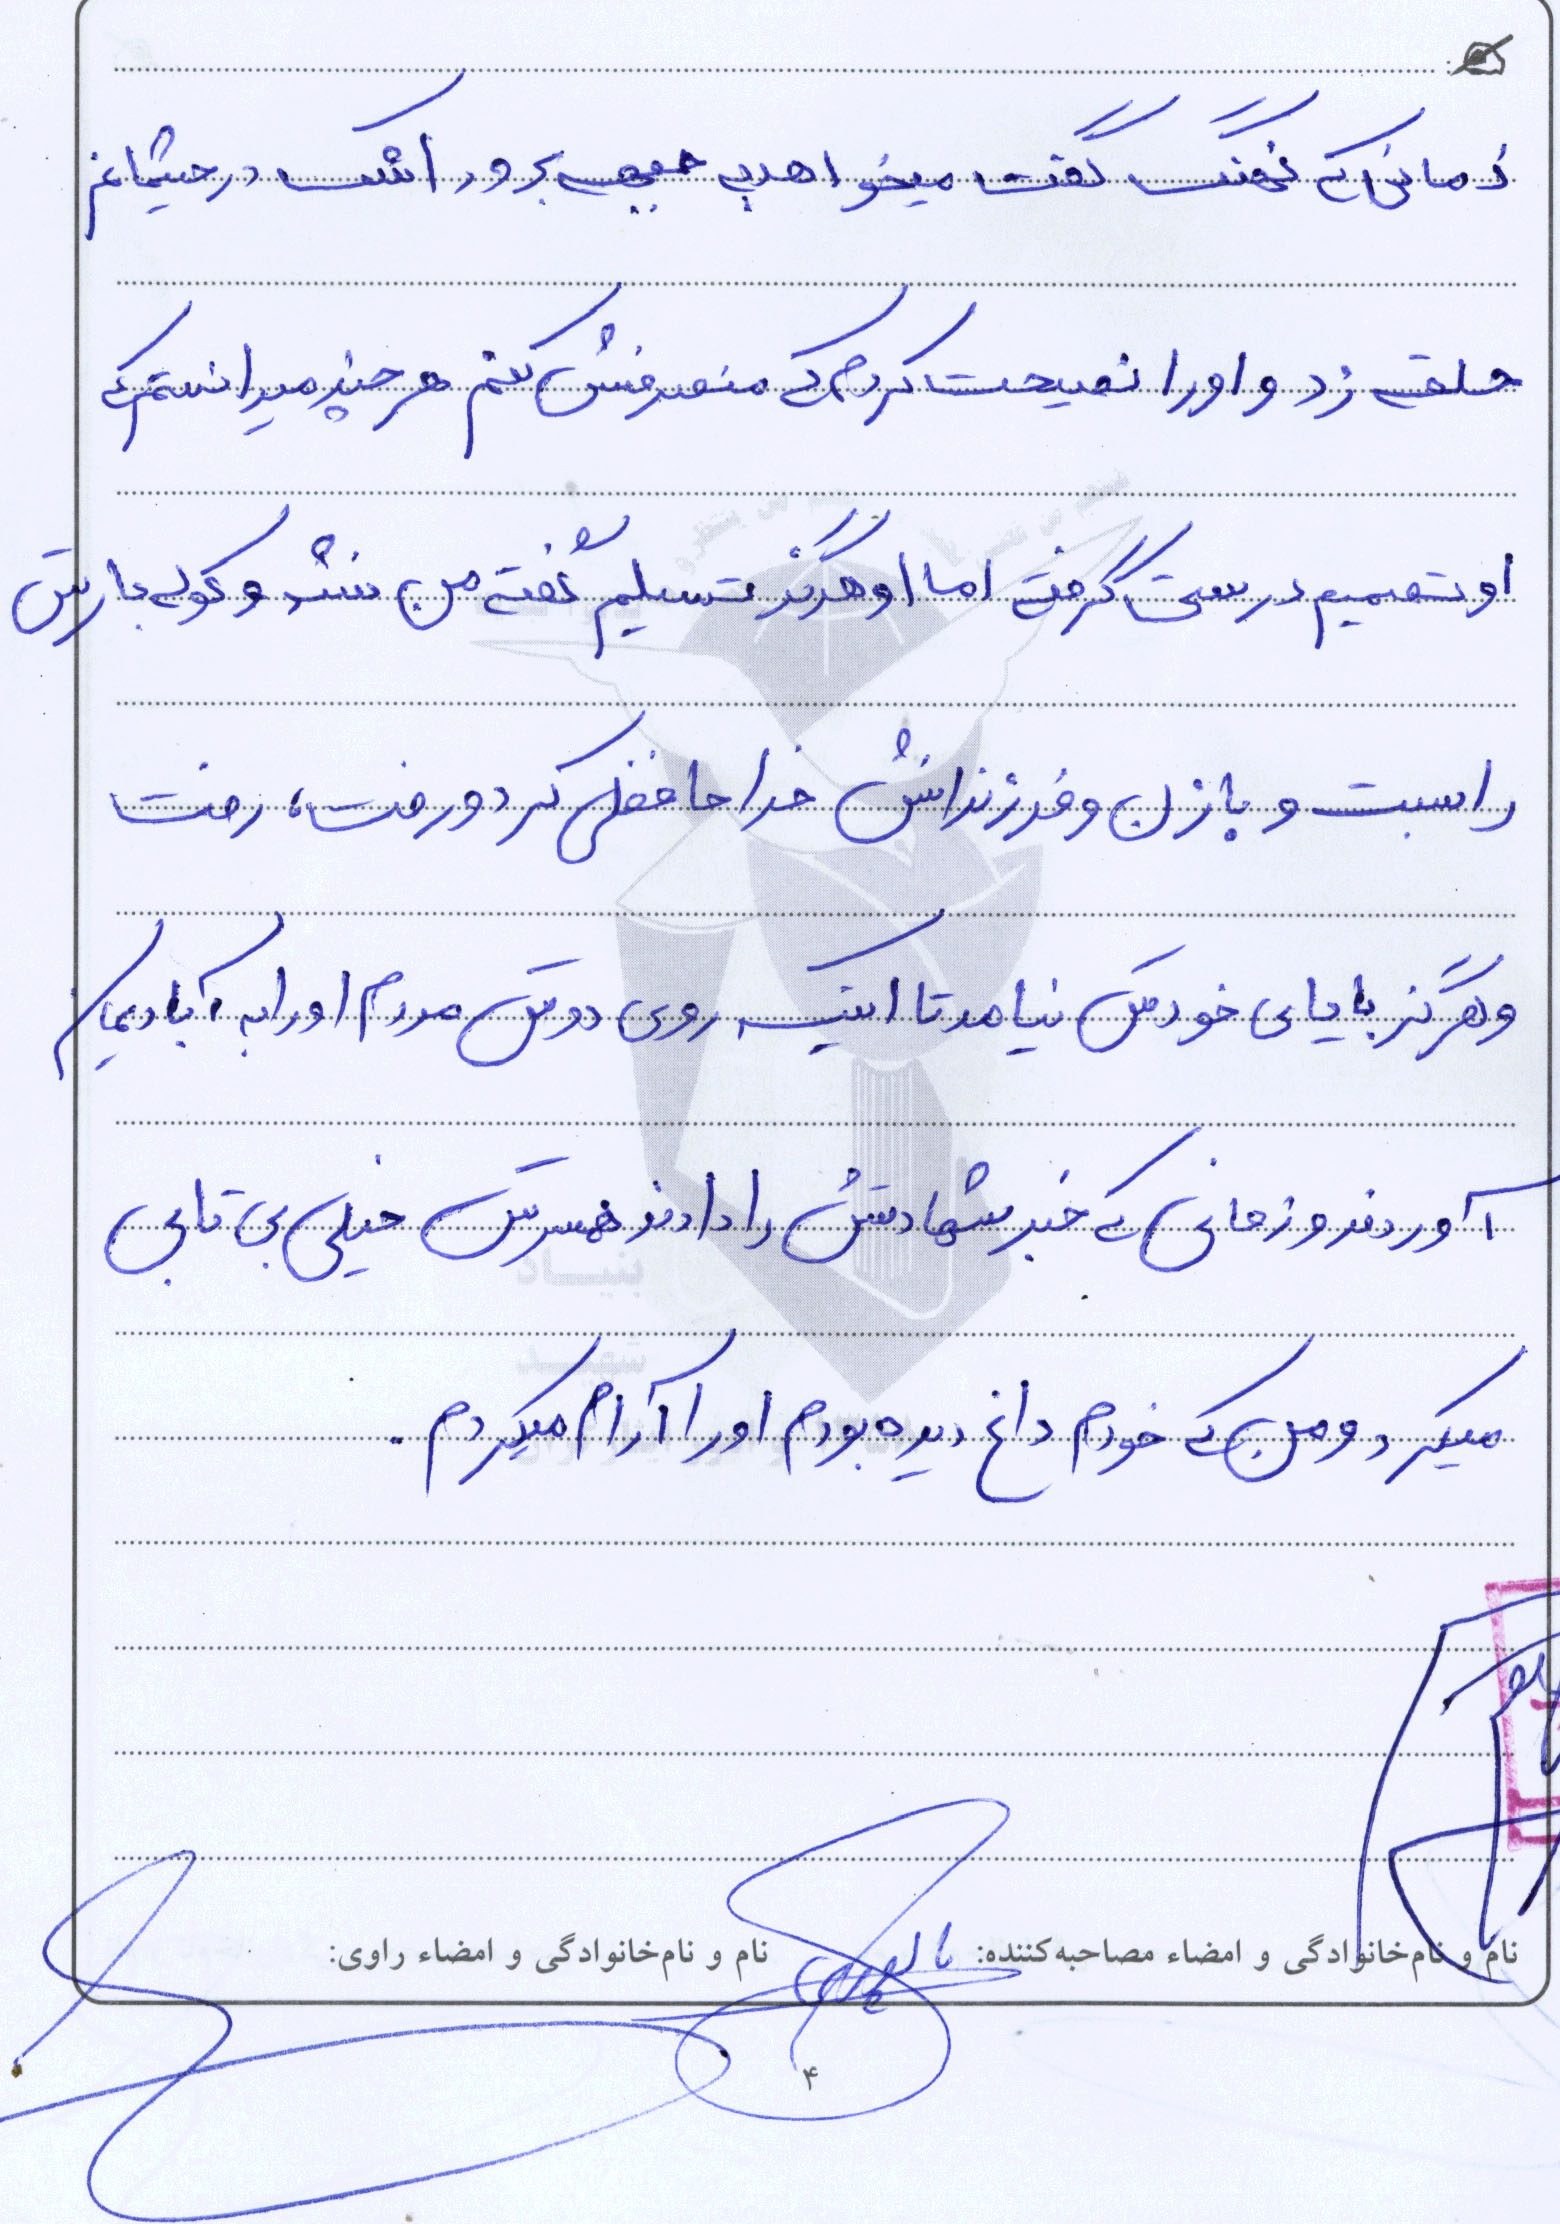 زمانی که نهنگ گفت میخواهد به جبهه برود اشک در چشمانم
حلقه زد و او را نصیحت کردم که منصرفش کنم هر چند میدانستم که
او تصمیم درستی گرفته اما او هرگز تسلیم گفته من نشد و کوله بارش
را بست و با زن و فرزندانش خداحافظی کرد و رفت، رفت
و هرگز با پای خودش نیامد تا اینکه روی دوش مردم او را به آبادیمان
آوردند و زمانی که خبر شهادتش را دادند همسرش خیلی بی تابی
میکرد و من که خودم داغ دیده بودم او را آرام میکردم.
بنیاد
شهید
نام و نام‌خانوادگی و امضاء مصاحبه‌کننده:
نام و نام‌خانوادگی و امضاء راوی:
۴